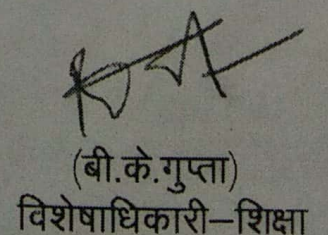 (बी.के.गुप्ता)
विशेषाधिकारी–शिक्षा